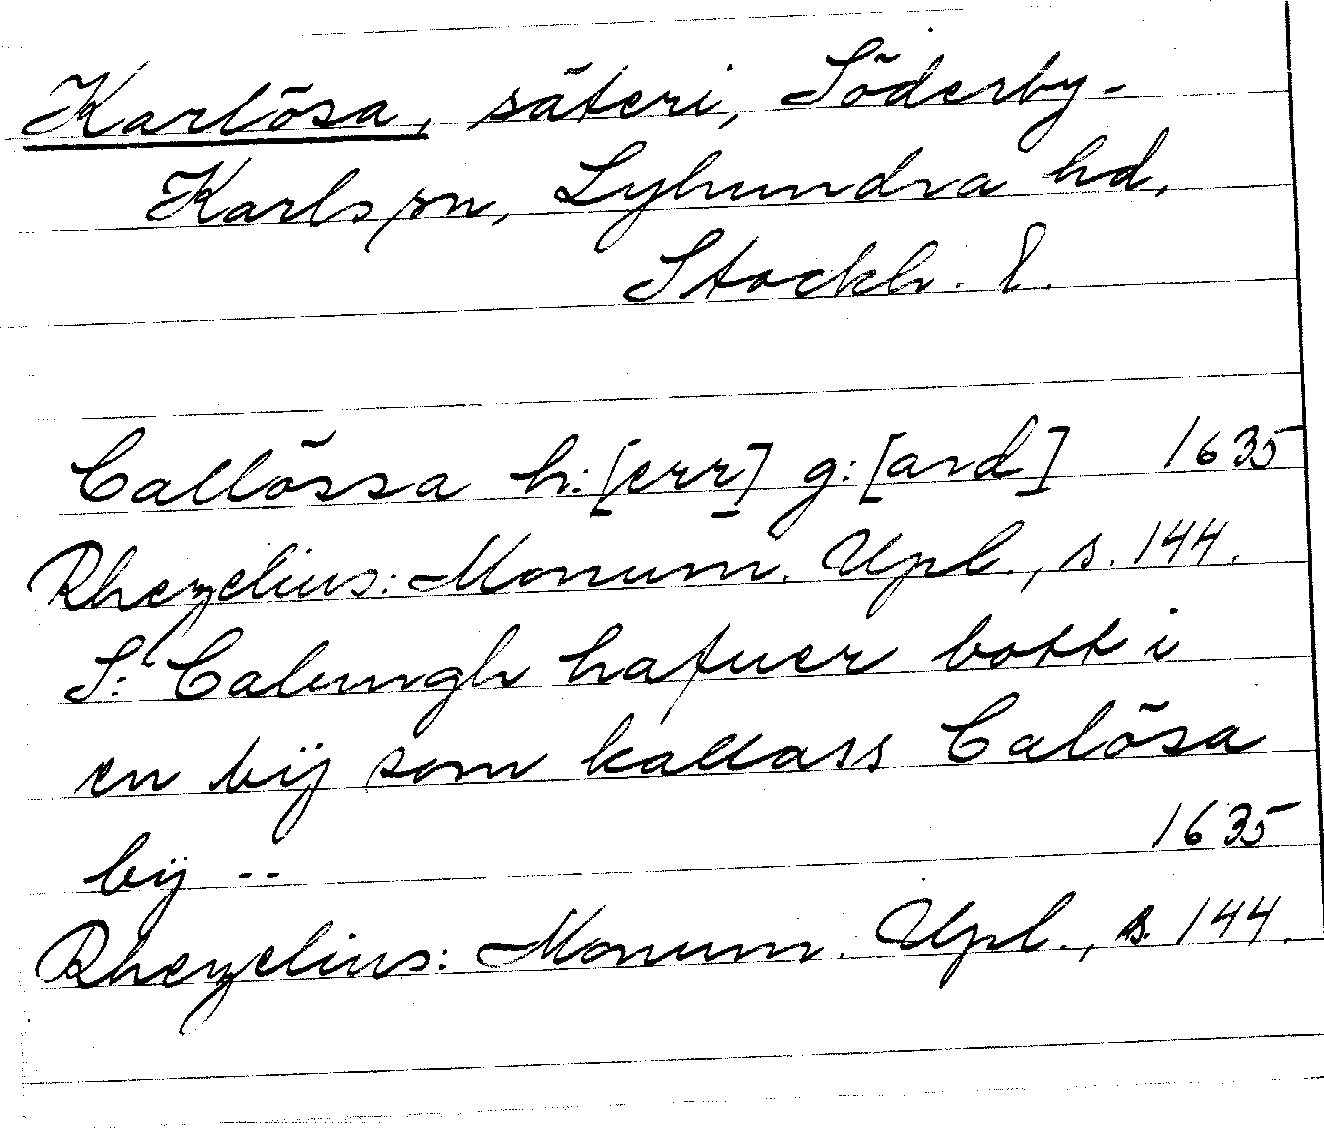 Karlösa, säteri, Söderby-
Karls sn, Lyhundra hd,
Stockh. l.
Callössa h:[err] g:[ard] 1635
Rhezelius: Monum. Upl., s. 144.
S: Calungh hafuer bott i
en bÿ som kallass Calösa
bÿ -- 1635
Rhezelius: Monum. Upl., s. 144.